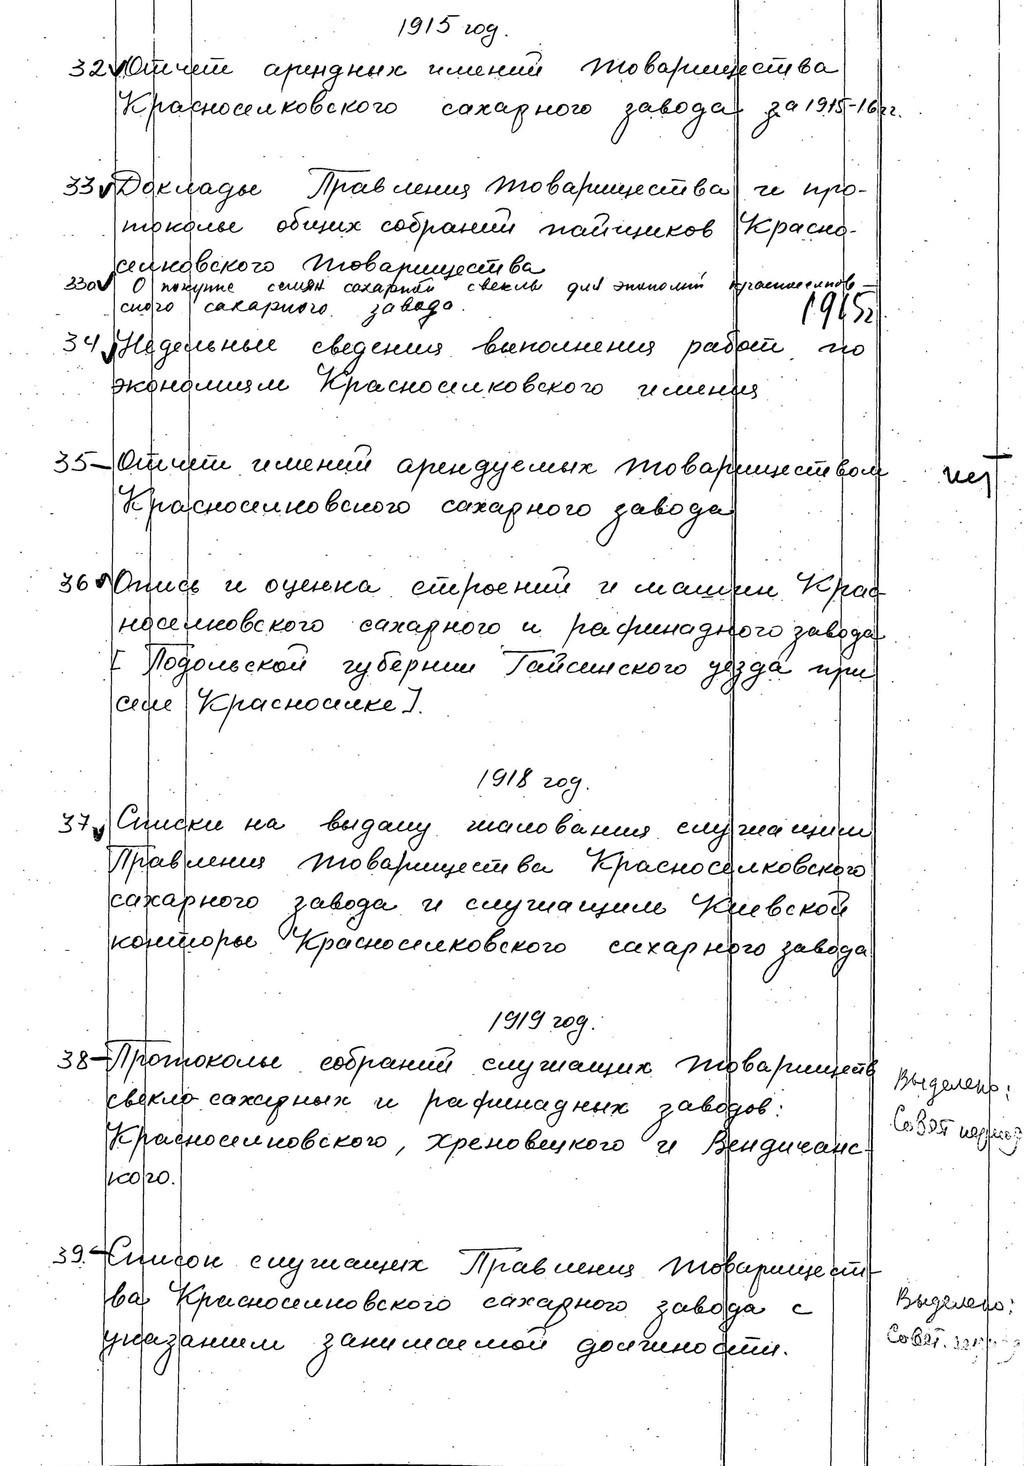 1915 год.
32 Отчет арендных имений товарищества
Красноселковского сахарного завода за 1915-16 гг.
33 Доклады Правления товарищества и про-
токолы общих собраний пайщиков Красно-
селковского товарищества
33а О покупке семян сахарной свеклы для экономий красноселков-
ского сахарного завода. 1915г
34 Недельные сведения выполнения работ по
экономиям Красноселковского имения
35- Отчет имений арендуемых товариществом нет
Красноселковского сахарного завода
36 Опись и оценка строений и машин Крас-
носелковского сахарного и рафинадного завода
[Подольской губернии Гайсинского уезда при
селе Красноселке].
1918 год.
37 Списки на выдачу жалования служащим
Правления товарищества Красноселковского
сахарного завода и служащим Киевской
конторы Красноселковского сахарного завода
1919 год.
38- Протоколы собраний служащих товариществ
свекло-сахарных и рафинадных заводов:
Красноселковского, Хреновецкого и Вендичанс-
кого.
Выделено:
Совет период
39.- Список служащих Правления товарищест-
ва Красноселковского сахарного завода с
указанием занимаемой должности.
Выделено:
Совет.